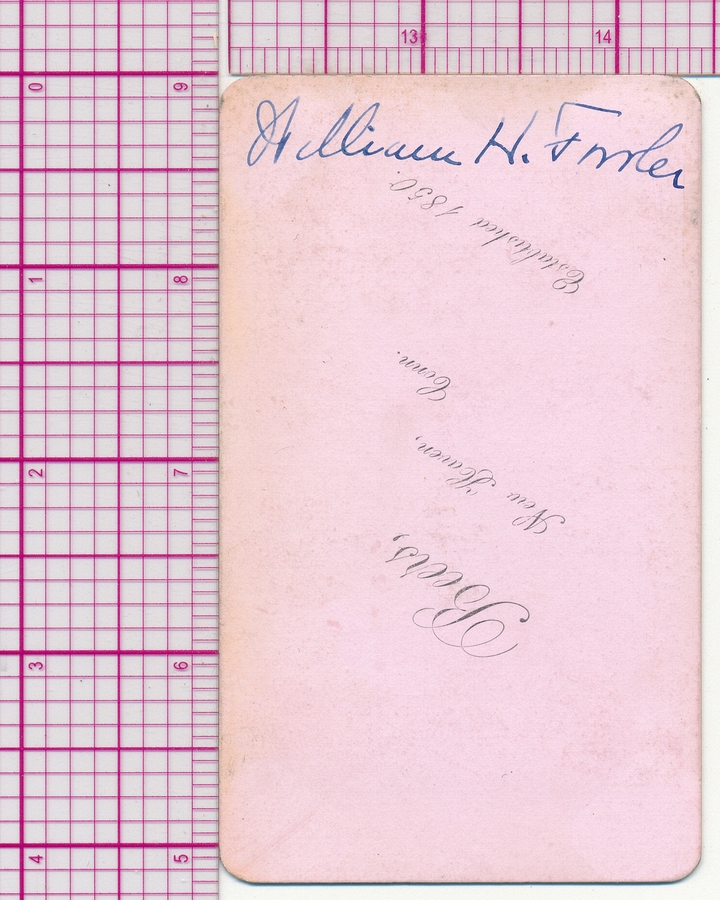 13 14
0 9
1 8
2 7
3 6
4 5
William H. Fowler
Beers,
New Haven,
Conn.
Established 1850.